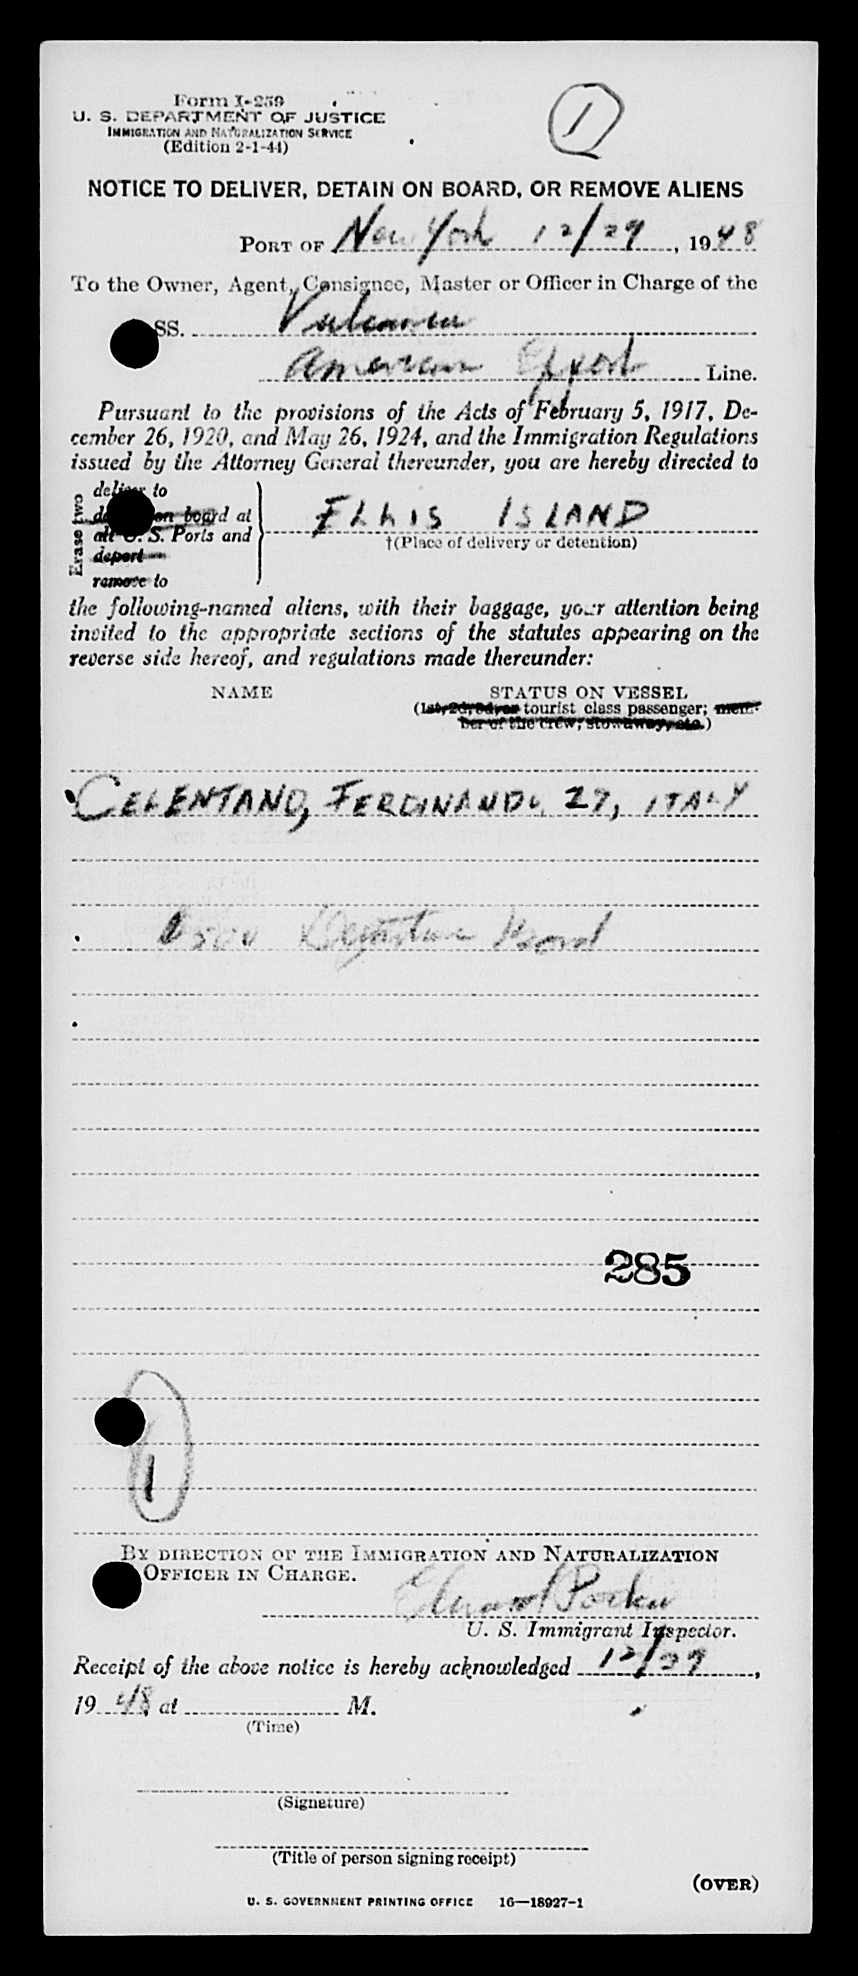 Form I-259
U. S. DEPARTMENT OF JUSTICE
IMMIGRATION AND NATURALIZATION SERVICE
(Edition 2-1-44)
1
NOTICE TO DELIVER, DETAIN ON BOARD, OR REMOVE ALIENS
PORT OF New York 12/29, 1948
To the Owner, Agent, Consignee, Master or Officer in Charge of the
SS. Vulcania
American Export Line.
Pursuant to the provisions of the Acts of February 5, 1917, De-
cember 26, 1920, and May 26, 1924, and the Immigration Regulations
issued by the Attorney General thereunder, you are hereby directed to
Erase two
deliver to
on board at
all U. S. Ports and
deport
remove to
ELLIS ISLAND
†(Place of delivery or detention)
the following-named aliens, with their baggage, your attention being
invited to the appropriate sections of the statutes appearing on the
reverse side hereof, and regulations made thereunder:
NAME STATUS ON VESSEL
(1st, 2d, 3d, or tourist class passenger; mem-
ber of the crew, stowaway, etc.)
CELENTANO, FERDINANDO, 27, ITALY
500 Departure Bond
285
1
BY DIRECTION OF THE IMMIGRATION AND NATURALIZATION
OFFICER IN CHARGE.
Edward
U. S. Immigrant Inspector.
Receipt of the above notice is hereby acknowledged 12/29,
1948, at M.
(Time)
(Signature)
(Title of person signing receipt)
(OVER)
U. S. GOVERNMENT PRINTING OFFICE 16—18927-1